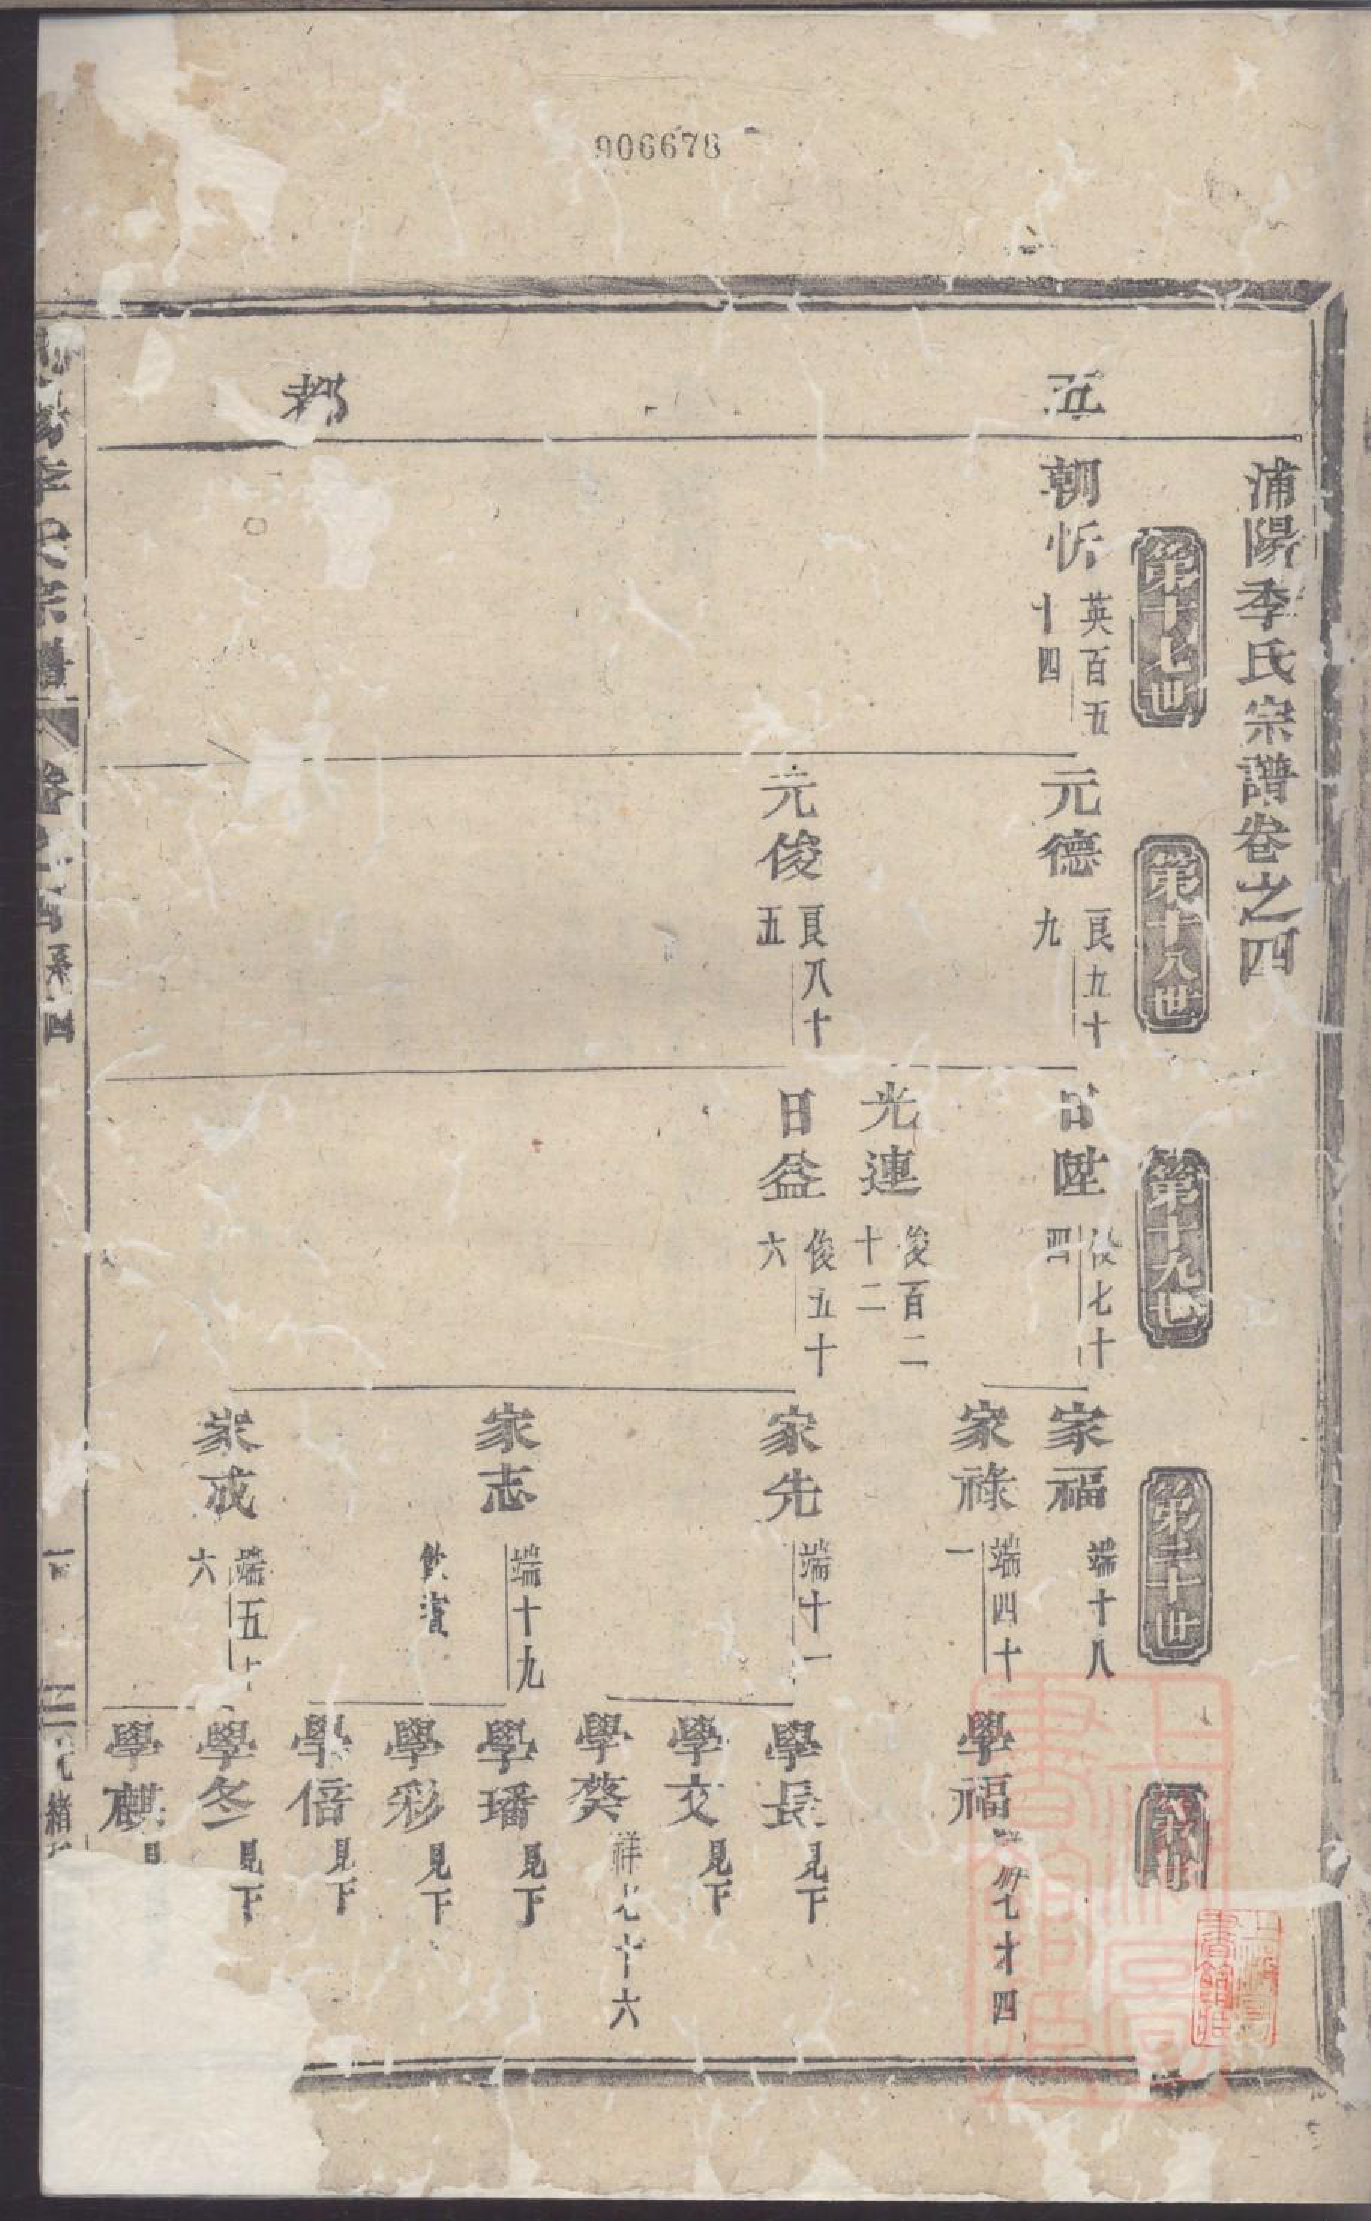 906678
浦陽季氏宗譜卷之四
第十七世
第十八世
第十九世
第二十世
五
都
朝忻 英百五十四
元德 良五十九
元俊 良八十五
日陞 俊七十四
光連 俊百二十二
日益 俊五十六
家福 端十八
家祿 端四十一
家先 端十一
家志 端十九
飲賓
家成 端五十六
學福
學長 見下
學文 見下
學葵 祥七十六
學璠 見下
學彩 見下
學倍 見下
學冬 見下
學麒 見
季氏宗譜 卷之四
上海圖書館藏